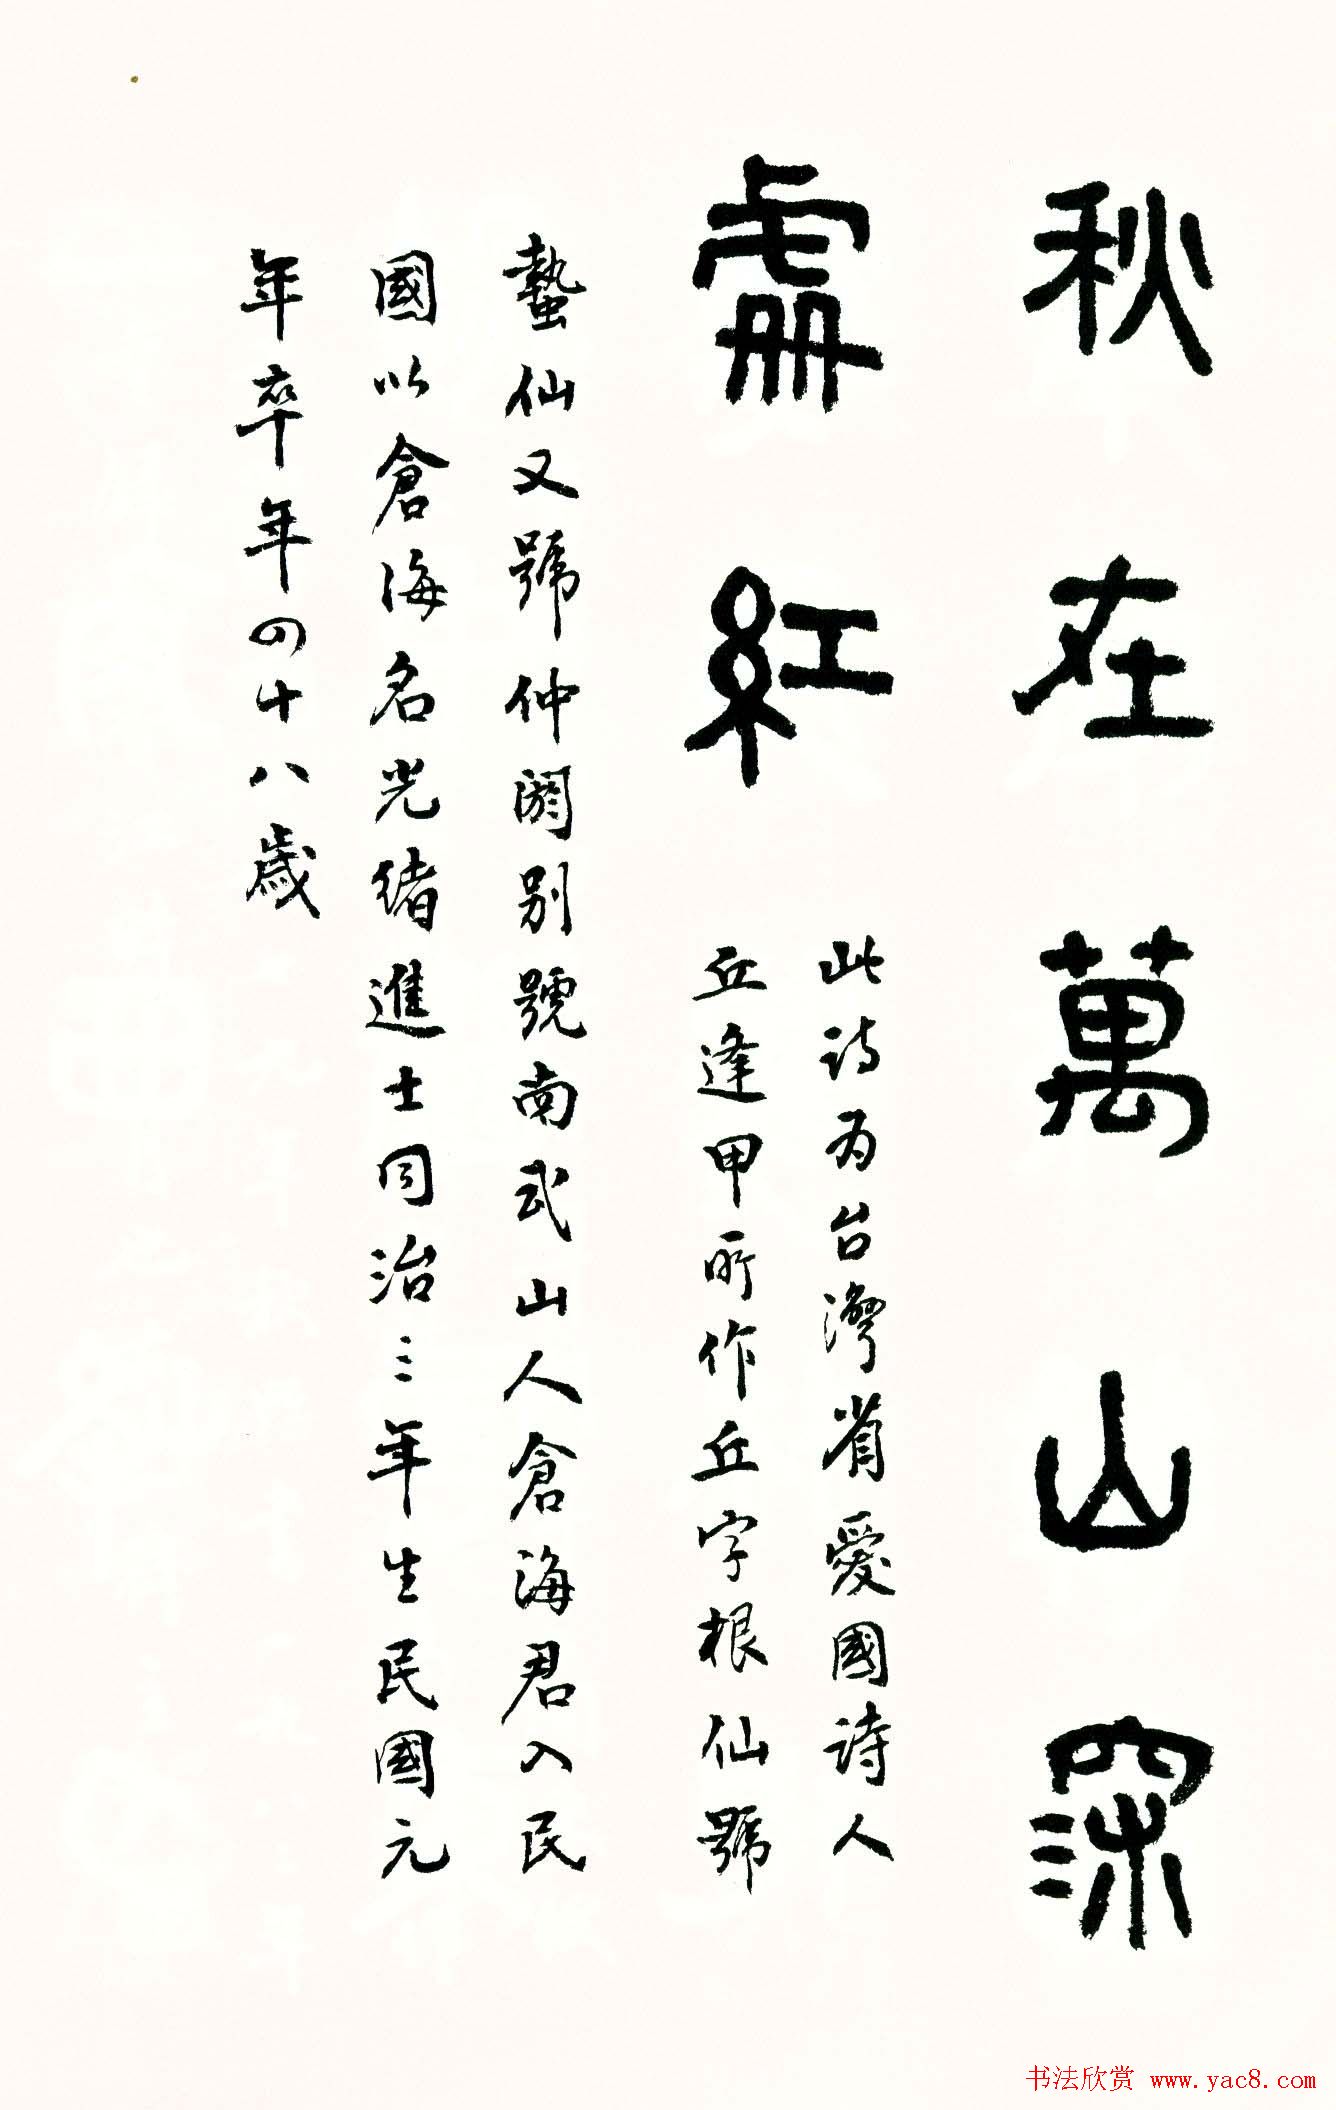 秋在萬山深
處紅
此诗为台灣省愛國詩人
丘逢甲所作丘字根仙號
蟄仙又號仲阏别號南武山人倉海君入民
國以倉海名光緒進士同治三年生民國元
年卒年四十八歲
书法欣赏 www.yac8.com